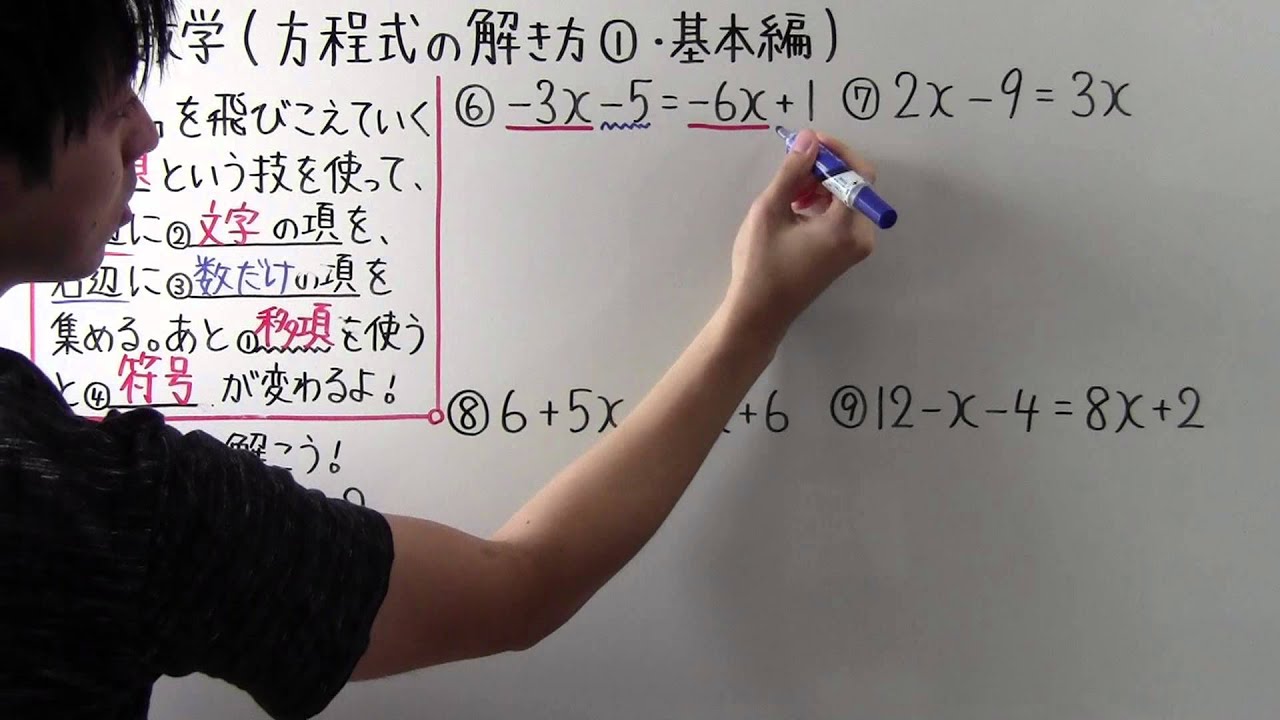 数学(方程式の解き方①・基本編)
を飛びこえていく
という技を使って、
に②文字の項を、
右辺に③数だけの項を
集める。あと①移項を使う
と④符号が変わるよ!
解こう!
⑥ -3x-5=-6x+1
⑦ 2x-9=3x
⑧ 6+5x +6
⑨ 12-x-4=8x+2